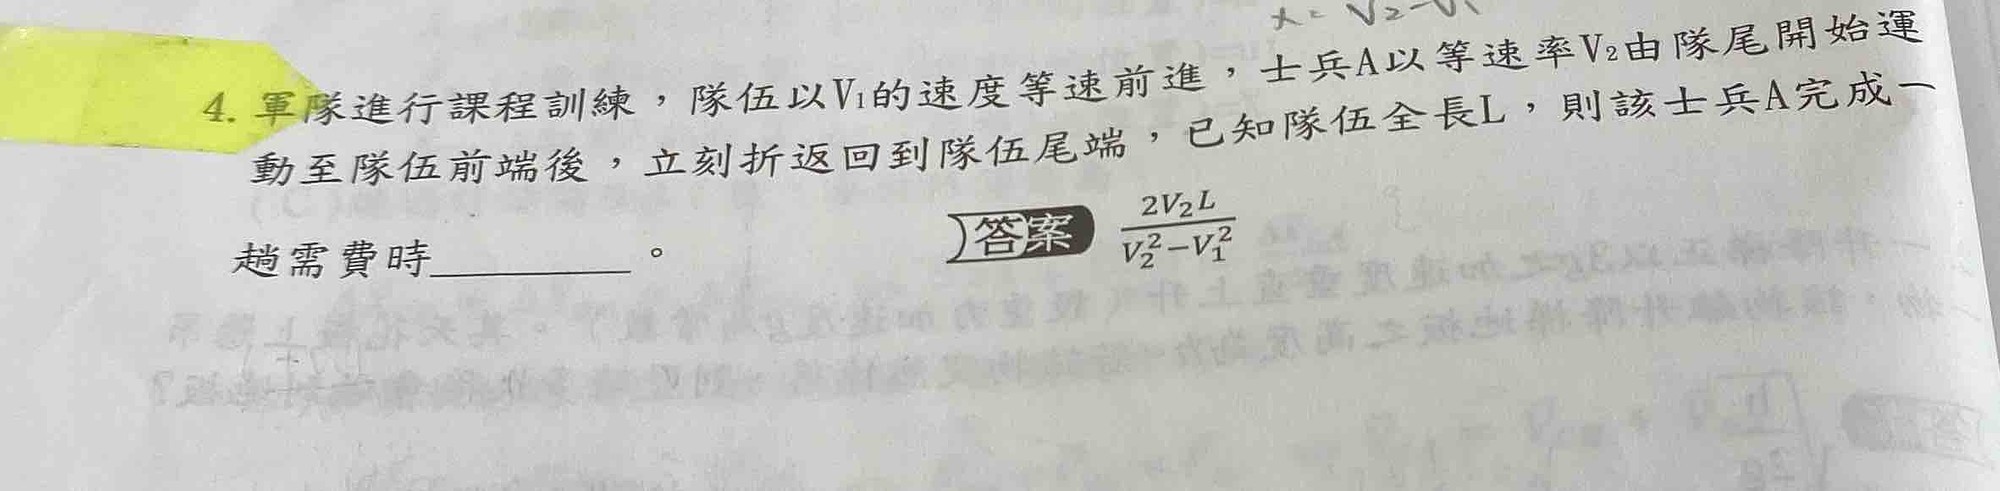 x = V₂ - V₁
4. 軍隊進行課程訓練，隊伍以V₁的速度等速前進，士兵A以等速率V₂由隊尾開始運
動至隊伍前端後，立刻折返回到隊伍尾端，已知隊伍全長L，則該士兵A完成一
趟需費時________。
答案 2V₂L / V₂² - V₁²